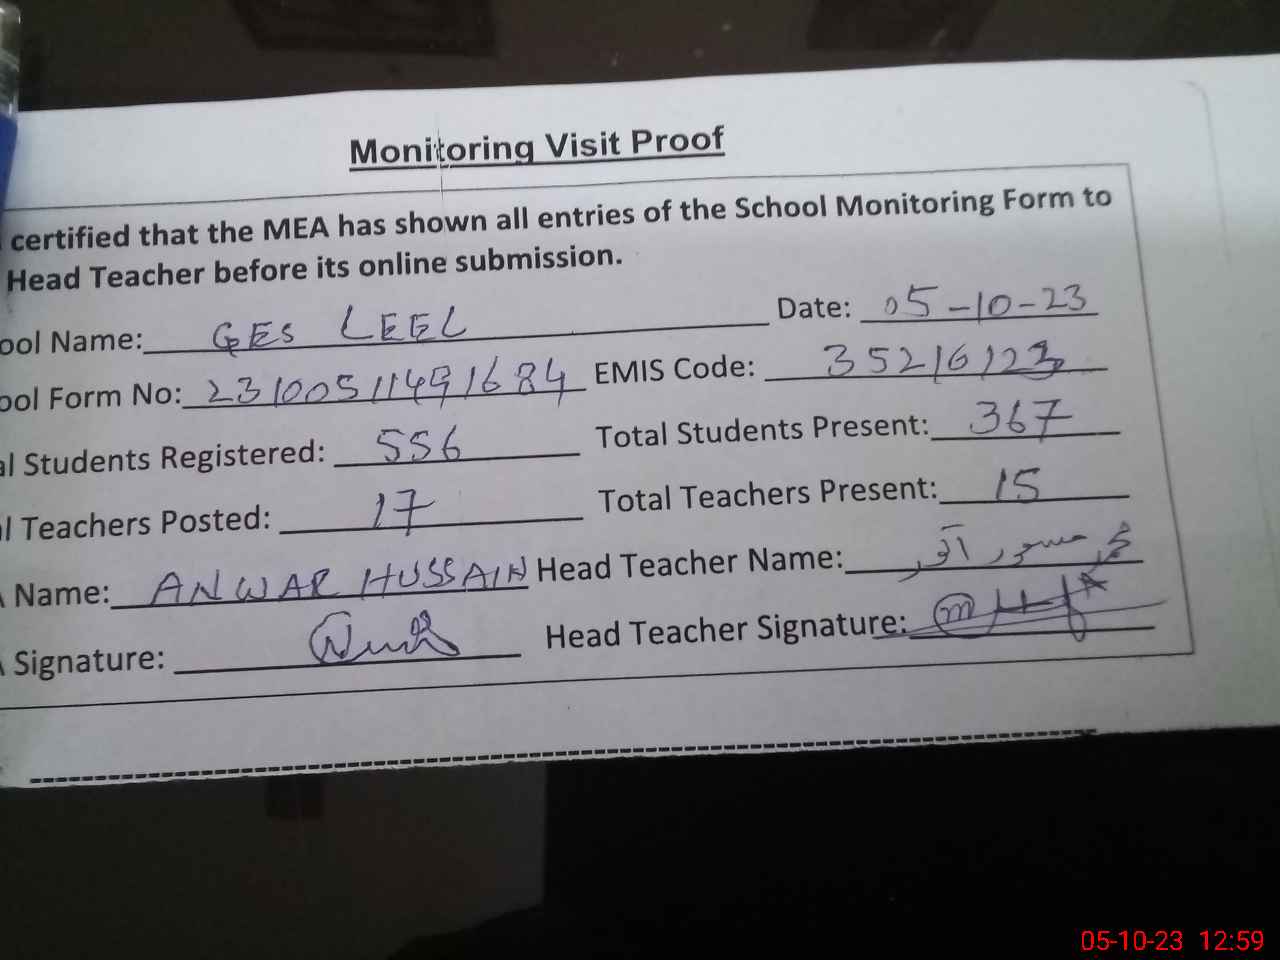 Monitoring Visit Proof
certified that the MEA has shown all entries of the School Monitoring Form to
Head Teacher before its online submission.
ool Name: GES LEEL Date: 05-10-23
ool Form No: 23100511491684 EMIS Code: 35216123
al Students Registered: 556 Total Students Present: 367
l Teachers Posted: 17 Total Teachers Present: 15
Name: ANWAR HUSSAIN Head Teacher Name:
Signature: Head Teacher Signature:
05-10-23 12:59